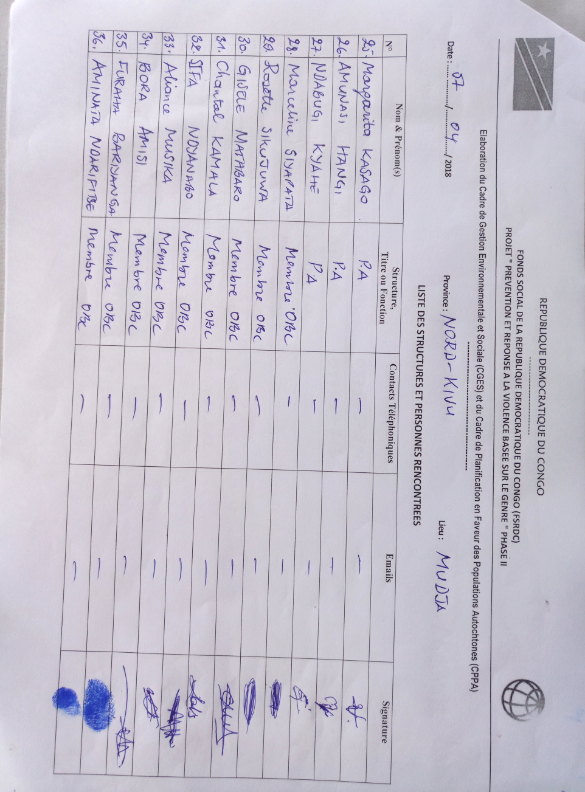 REPUBLIQUE DEMOCRATIQUE DU CONGO
FONDS SOCIAL DE LA REPUBLIQUE DEMOCRATIQUE DU CONGO (FSRDC)
PROJET " PREVENTION ET REPONSE A LA VIOLENCE BASEE SUR LE GENRE " PHASE II
Elaboration du Cadre de Gestion Environnementale et Sociale (CGES) et du Cadre de Planification en Faveur des Populations Autochtones (CPPA)
Date : 07 / 04 / 2018 Province : NORD-KIVU Lieu : MUDJA
LISTE DES STRUCTURES ET PERSONNES RENCONTREES
N° Nom & Prénom(s) Structure, Titre ou Fonction Contacts Téléphoniques Emails Signature
25. Margarita KASAGO P.A — —
26. AMUNASI HANGI P.A — —
27. NDABUGI KYAHE P.A — —
28. Marceline SIYAPATA Membre OBC — —
29. Rosette SIKUJUWA Membre OBC — —
30. GISELE MATABARO Membre OBC — —
31. Chantal KAMALA Membre OBC — —
32. SIFA NDYANABO Membre OBC — —
33. Aliance MUSIKA Membre OBC — —
34. BORA AMISI Membre OBC — —
35. FURAHA BARIYANGA Membre OBC — —
36. AMINATA NDARIFITBE Membre OBC — —